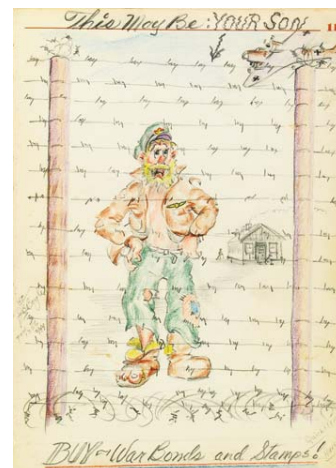 This May Be: YOUR SON
BUY - War Bonds and Stamps!